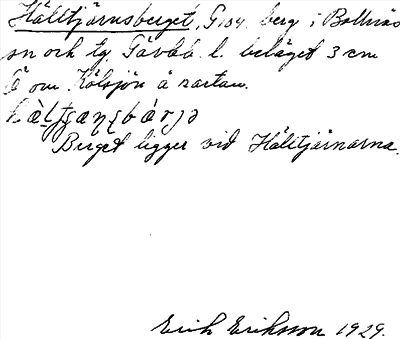 Hälltjärnsberget, G104. berg i Bollnäs
sn och tg. Gävleb. l. beläget 3 cm
Ö om Kölsjön å kartan.
Berget ligger vid Hälltjärnarna.
Erik Eriksson 1929.